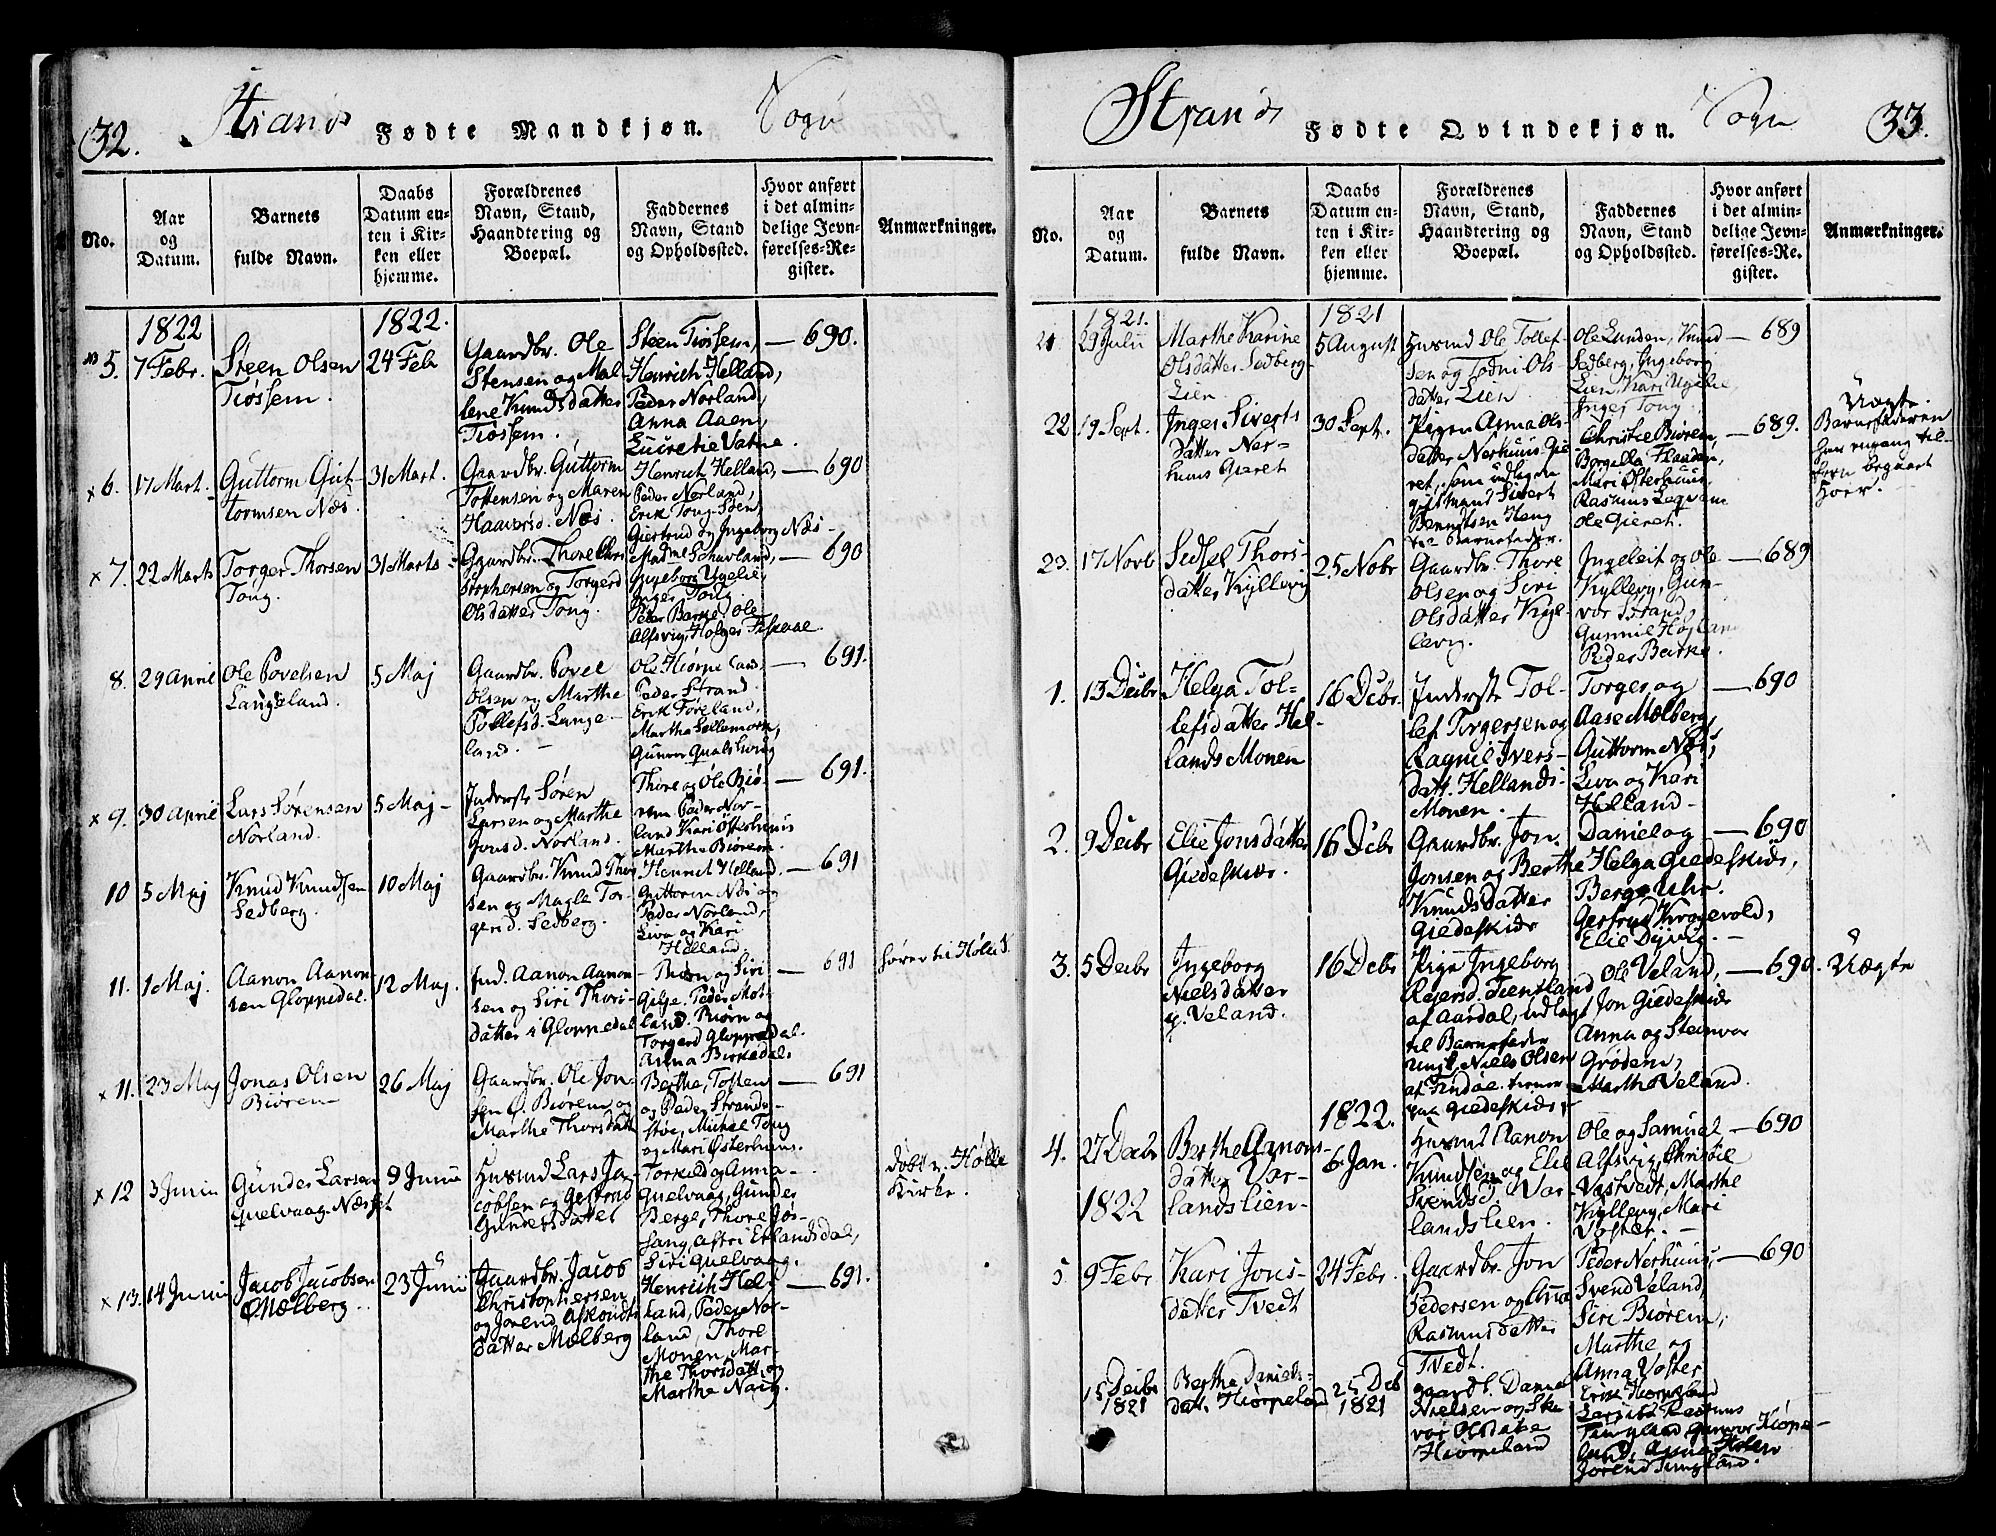 32. Strands Fødte Mandkjøn. Sogn
No.
Aar og Datum.
Barnets fulde Navn.
Daabs Datum enten i Kirken eller hjemme.
Forældrenes Navn, Stand, Haandtering og Boepæl.
Faddernes Navn, Stand og Opholdssted.
Hvor anført i det almindelige Jevnførelses-Register.
Anmærkninger.
1822
1822.
5.
7 Febr.
Steen Olsen
Tiøssem.
24 Feb
Gaardbr. Ole
Stensen og Mal-
lene Knudsdatter
Tiøssem.
Steen Tiøssem,
Henrich Helland,
Peder Norland,
Anna Aaen,
Lucretie Vatne.
690.
x 6.
17 Mart.
Guttorm Gut-
tormsen Næs.
31 Mart.
Gaardbr. Guttorm
Tostensen og Maren
Haaversd. Næs.
Henrich Helland,
Peder Norland,
Erik Tong
Giertrud og Ingeborg Næs
690
x 7.
22 Marts
Torger Thorsen
Tong.
31 Marts
Gaardbr. Thore Chri
stophersen og Torgerd
Olsdatter Tong.
Madme Schavland,
Ingeborg Ugelie,
Inger Tong
Peder Barke, Ole
Alfsvig, Holger Fiskaae.
690
8.
29 April
Ole Povelsen
Langeland.
5 Maj
Gaardbr. Povel
Olsen og Marthe
Tollefsd. Lange-
land.
Ole Hiørpeland,
Peder Strand.
Erik Føreland,
Martha Sellemork,
Gunvor
691.
x 9.
30 April
Lars Sørensen
Norland.
5 Maj
Inderste Søren
Larsen og Marthe
Jonsd. Norland.
Thore og Ole Biø-
rem Peder Nor-
land Kari Østerhuus
Marthe Biørem.
691.
10
5 Maj
Knud Knudsen
Sedberg.
10 Maj
Gaardbr. Knud Thor
sen og Magle Tor-
gersd. Sedberg.
Henrich Helland.
Guttorm Næs og
Peder Norland,
Liva og Kari
Helland.
691
11.
1 Maj.
Aanon Aanon-
sen Gloppedal.
12 Maj.
Ind. Aanon Aanon
sen og Siri Thors-
datter i Gloppedal
Biørn og Siri
Gilje. Peder Mos-
land. Biørn og
Torgerd Gloppedal.
Anna Birkedal.
691
hører til Høle S.
x 11.
23 Maj
Jonas Olsen
Biørem
26 Maj
Gaardbr. Ole Jon-
sen Ø. Biørem og
Marthe Thorsdatt
Berthe, Tosten
og Peder Strands-
støe, Michel Tong
og Mari Østerhuus.
691
x 12
3 Junii
Gunder Larsen
Quelvaag-Næsset
9 Junii
Husmd Lars Ja-
cobsen og Gertrud
Gundersdatter
Torkild og Anna
Quelvaag, Gunder
Berge, Thore Jøs-
sang, Astri Erlandsdal,
Siri Quelvaag.
døbt v. Hølle
Kirke.
x 13.
14 Junii
Jacob Jacobsen
Mælberg.
23 Junii
Gaardbr. Jacob
Christophersen
og Jorend Askoudts
datter Mælberg
Henrich Hel-
land, Peder Nor-
land, Thore
Monen, Mar-
the Thorsdatt. og
Marthe Naig.
691.
Strands Fødte Qvindekjøn. Sogn 33.
No.
Aar og Datum.
Barnets fulde Navn.
Daabs Datum enten i Kirken eller hjemme.
Forældrenes Navn, Stand, Haandtering og Boepæl.
Faddernes Navn, Stand og Opholdssted.
Hvor anført i det almindelige Jevnførelses-Register.
Anmærkninger.
1821.
1821
21
29 Julii
Marthe Karine
Olsdatter Sedberg-
Lien.
5 August
Husmd Ole Tollef-
sen og Todni Ols-
datter Lien
Ole Lunden, Knud
Sedberg, Ingeborg
Lien, Kari Ugelie,
Inger Tong.
689
22
19 Sept.
Inger Siverts
datter Ner-
huus Gieret
30 Sept.
Pigen Anna Ols-
datter Nerhuus Gie
ret, som udlagde
gift mand Sivert
Berentsen Haug
til Barnefader.
Christie Biørem,
Borgilla Flanden,
Mari Østerhuus,
Rasmus Legvam
Ole Gieret.
689.
Uægte.
Barnefaderen
har engang til-
forn begaaet
Hoer.
23.
17 Novb
Sidsel Thors-
datter Kyllevig
25 Nobr
Gaardbr. Thore
Olsen og Siri
Olsdatter Kyl-
levig.
Ingeleit og Ole
Kyllevg, Gun-
vor Strand,
Gunnil Høyland
Peder Barke.
689
1.
13 Decbr
Helga Tol-
lefsdatter Hel-
lands Monen
16 Dcbr.
Inderste Tol-
lef Torgersen og
Ragnil Ivers-
datt. Hellands-
Monen.
Torger og
Aase Mælberg,
Guttorm Næs,
Liva og Kari
Helland
690
2.
9 Decbr
Elie Jonsdatter
Giedeskiær.
16 Dcbr
Gaardbr. Jon
Jonsen og Berthe
Knudsdatter
Giedeskiær
Daniel og
Helga Giedeskiær,
Berge Uhr.
Gertrud Krogevold,
Elie Dyvig.
690
3.
5 Decbr
Ingeborg
Nielsdatter
Veland.
16 Dcbr
Pigen Ingeborg
Reiersd. Tientland
af Aardal, udlagt
til Barnefader
Ungk. Niels Olsen
af Findøe
paa Giedeskiær.
Ole Veland,
Jon Giedeskiær
Anna og Steinvor
Grødem,
Martha Veland.
690.
Uægte
1822.
4.
27 Decbr
Berthe Aanons-
datter Var-
landslien
6 Jan.
Husmd Aanon
Knudsen og Elie
Svendsd. Var-
landslien.
Ole og Samuel
Alfsvig, Christie
Vastvedt, Marthe
Kyllevig, Mari
Voster.
690
1822
5.
9 Febr
Kari Jons-
datter Tvedt
24 Febr.
Gaardbr. Jon
Pedersen og Anna
Rasmusdatter
Tvedt.
Peder Nerhuus,
Svend Veland,
Siri Biørem,
Marthe og
Anna Voster
690
15 Decbr
1821
Berthe Daniels-
datt. Hiørpeland
25 Dcb
1821
Gaardb. Daniel
Nielsen og
Olsdatter
Hiørpeland
Erik Hiørpeland
Rasmus
Tungland Gunvor Hiørpe-
land, Anna Holen
Jorend Tungland.